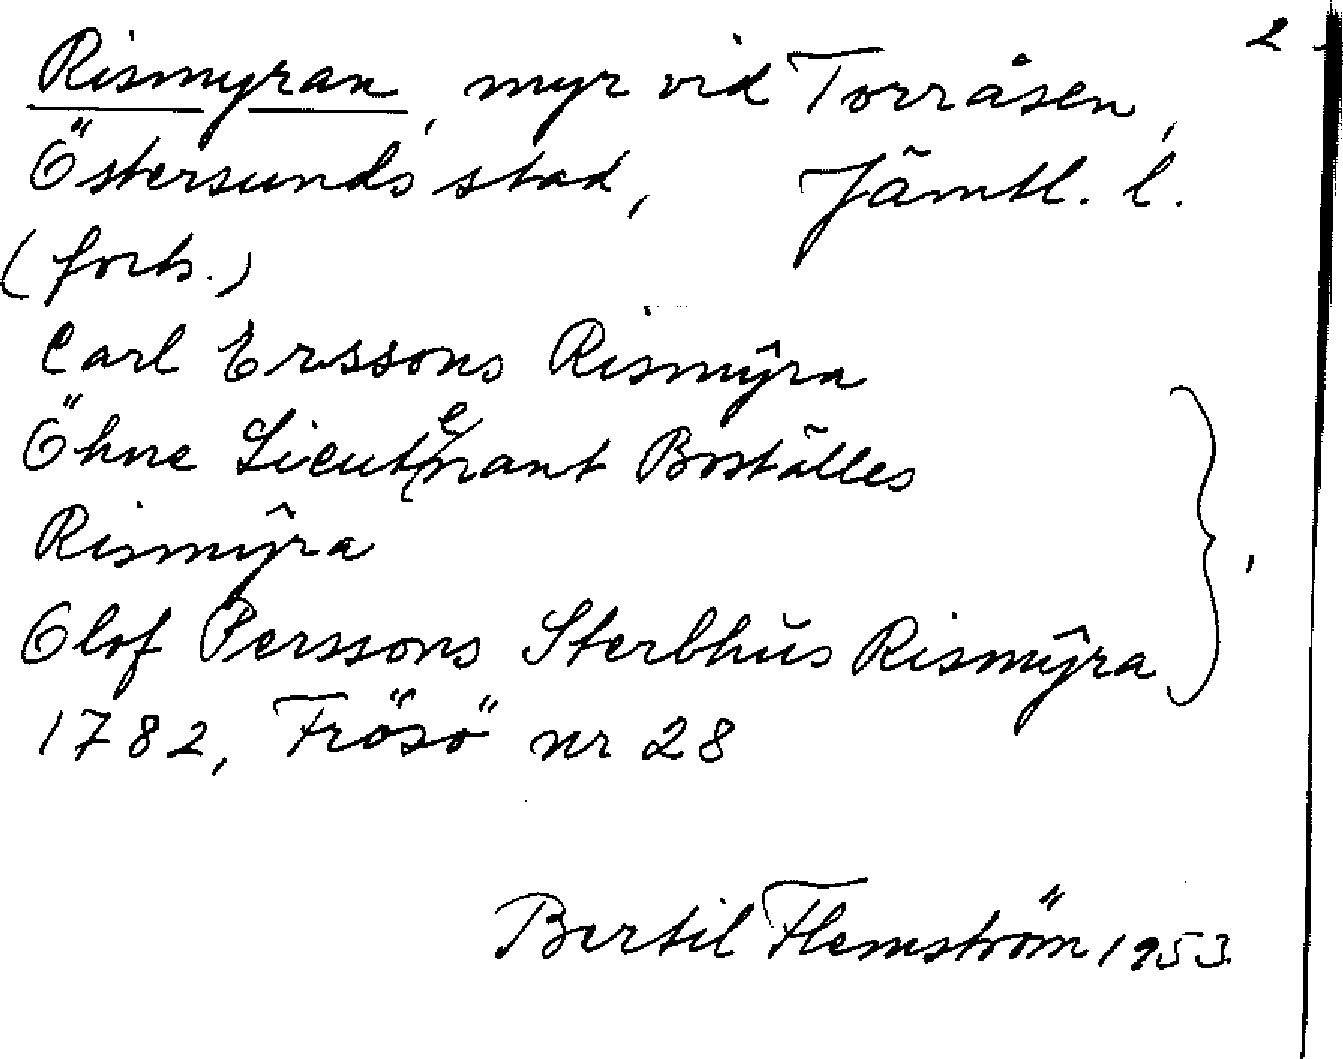 2
Rismyran, myr vid Torråsen,
Östersunds stad, Jämtl. l.
(forts.)
Carl Erssons Rismŷra
Öhne Lieutenant Boställes
Rismŷra
Olof Perssons Sterbhus Rismŷra
1782, Frösö nr 28
Bertil Flemström 1953